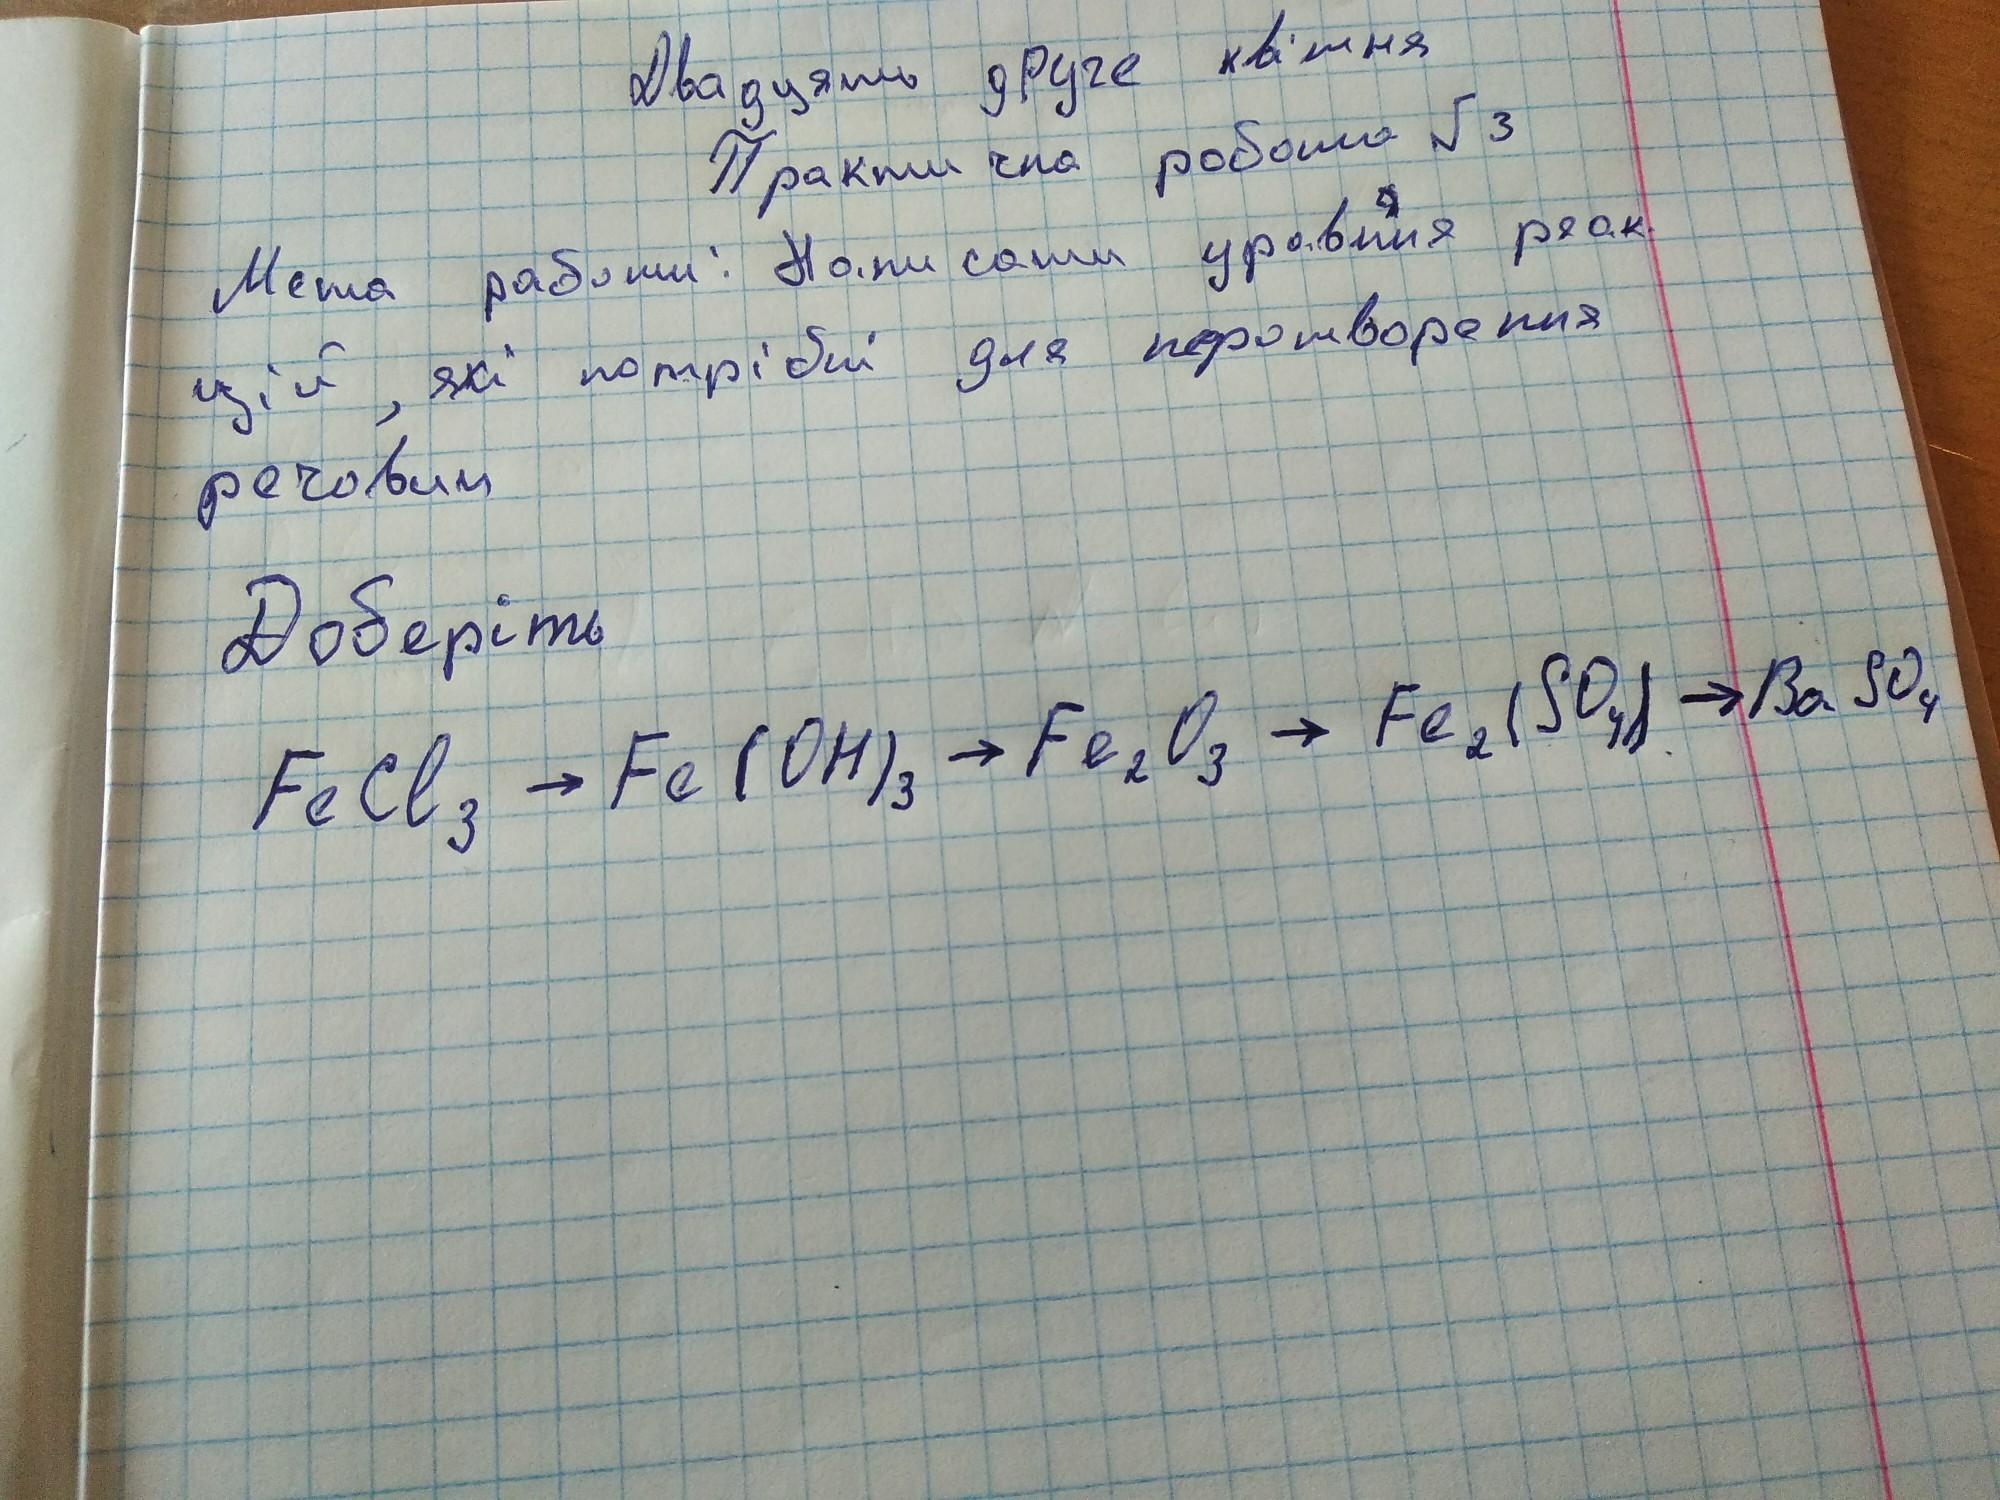 Двадцять друге квітня
Практична робота √3
Мета работи: Написати уравнія реак
цій, які потрібні для перотворення
речовин
Доберіть
FeCl₃ → Fe(OH)₃ → Fe₂O₃ → Fe₂(SO₄)₃ → BaSO₄